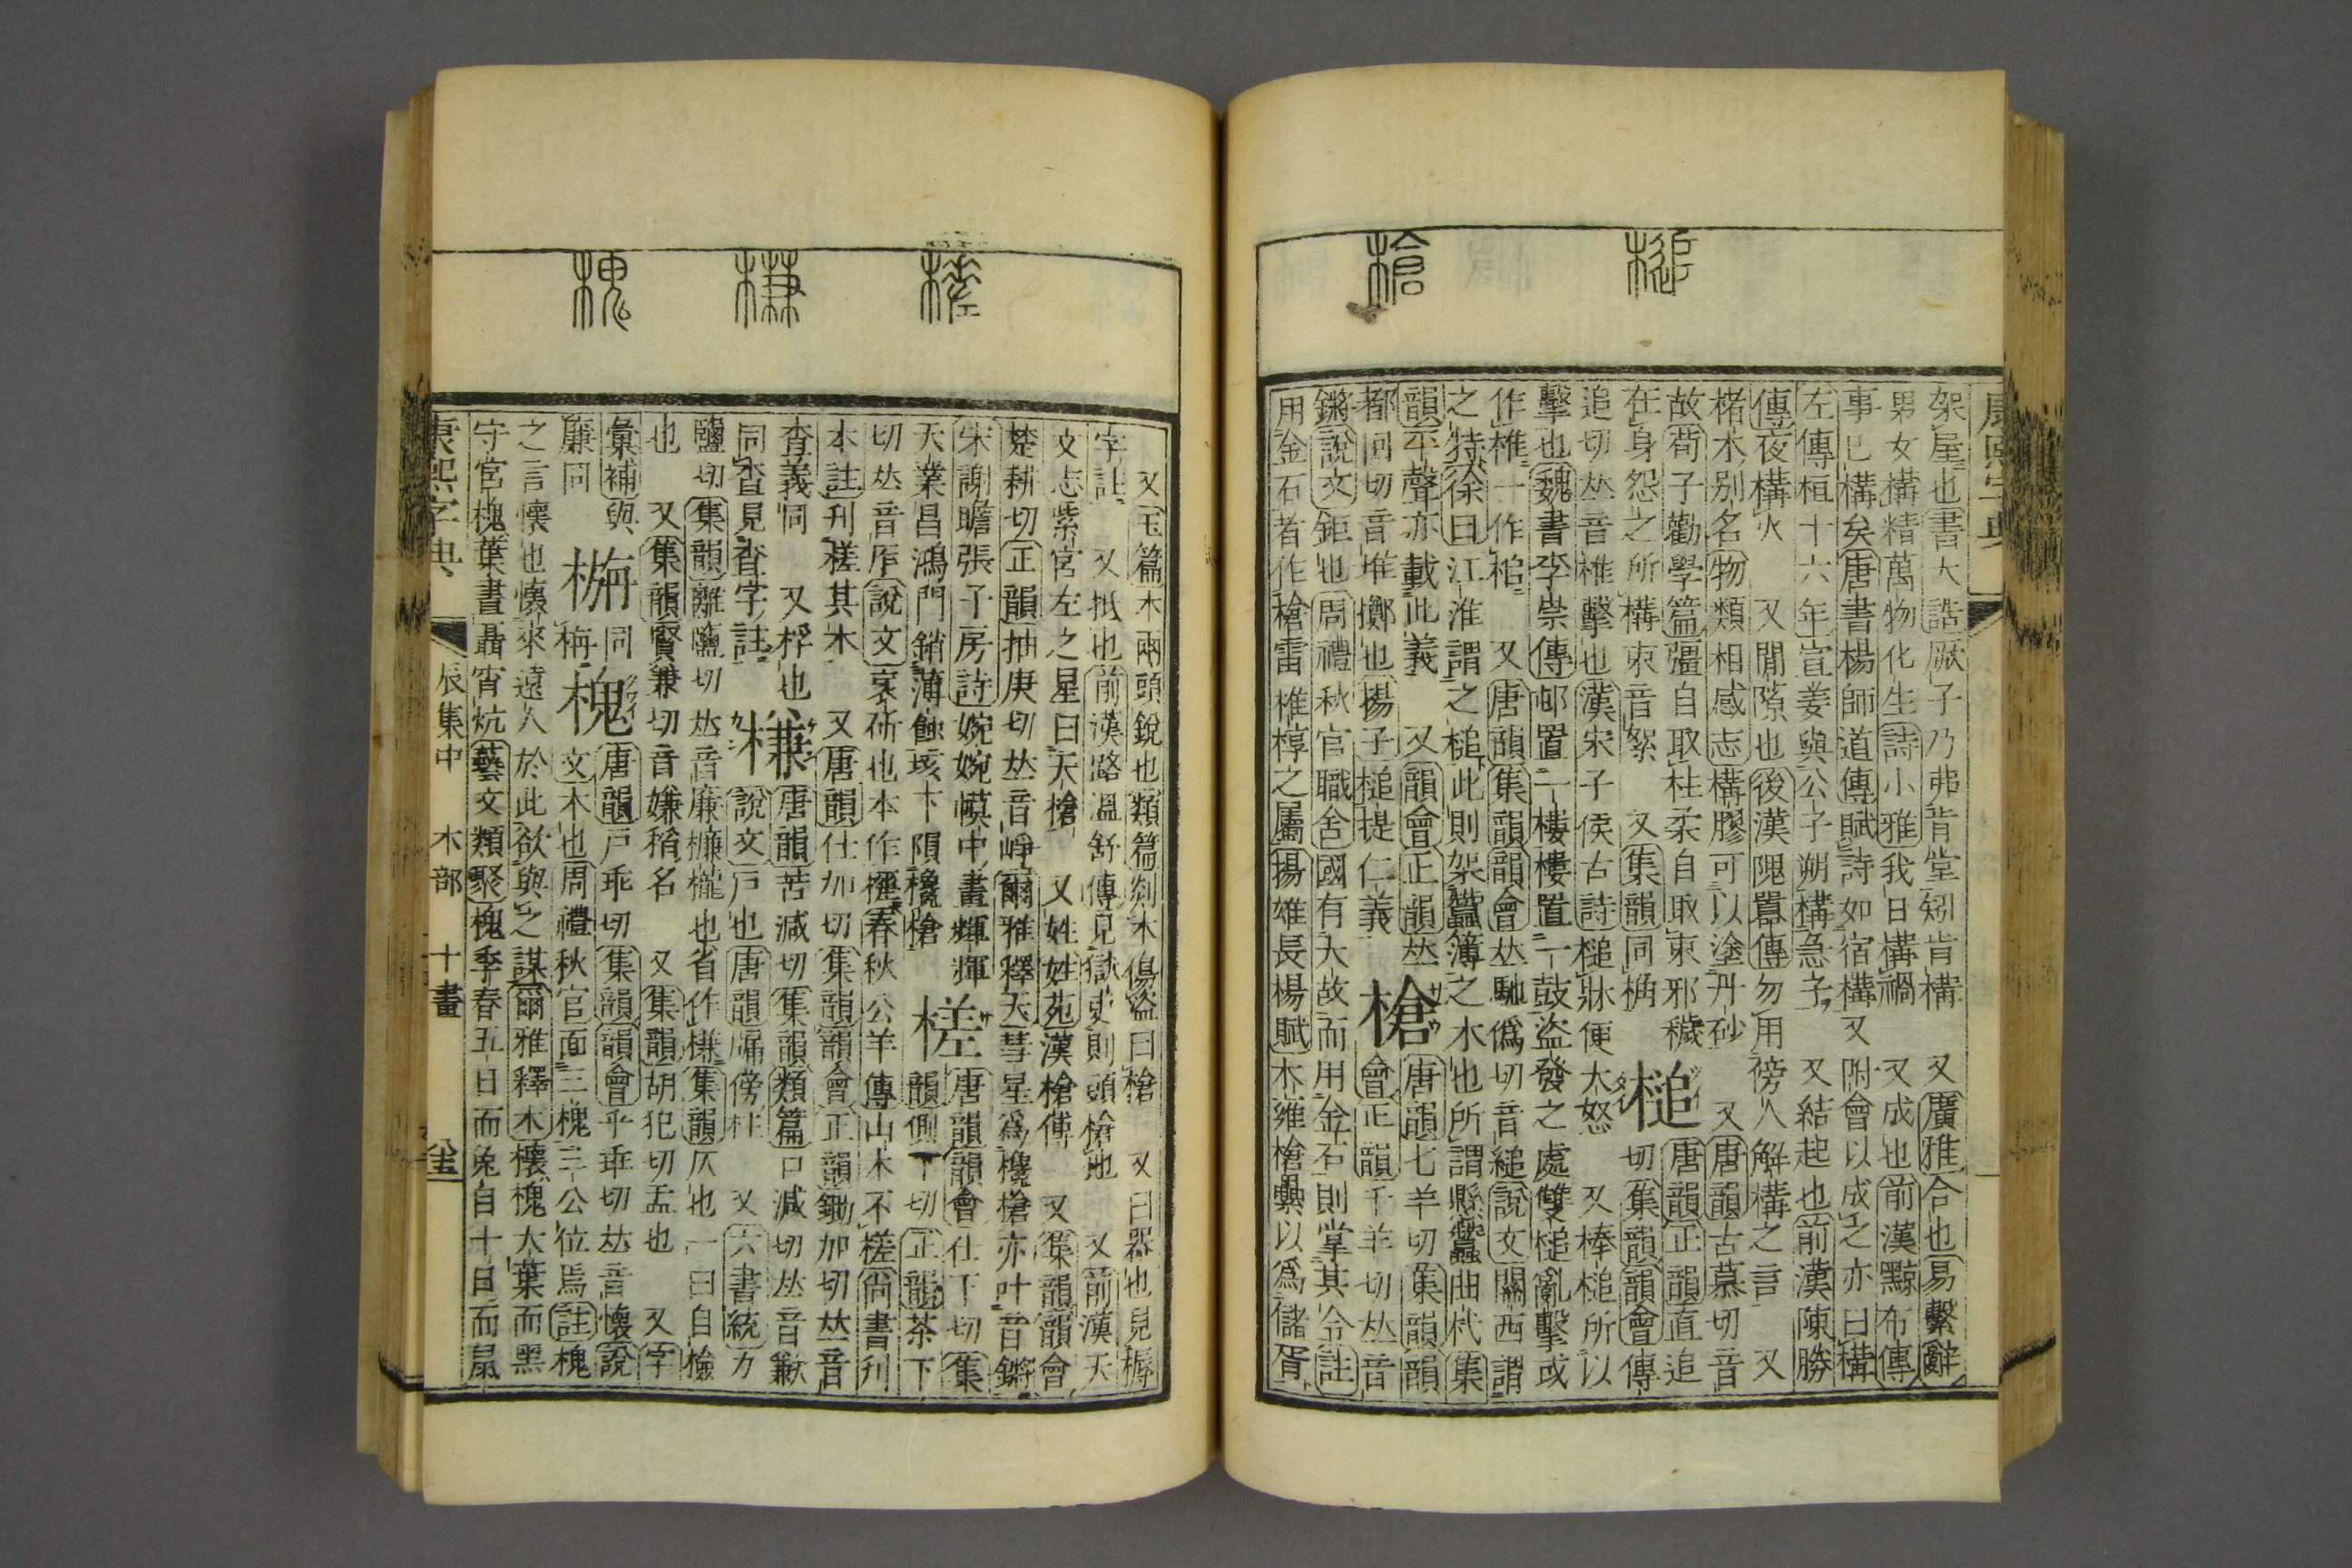 槌
槍
康熙字典
架屋也書大誥厥子乃弗肯堂矧肯構 又廣雅合也易繫辭
男女構精萬物化生詩小雅我日構禍 又成也前漢黥布傳
事已構矣唐書楊師道傳賦詩如宿構又附會以成之亦曰構
左傳桓十六年宣姜與公子朔構急子 又結起也前漢陳勝
傳夜構火 又閒隙也後漢隗囂傳勿用傍人解構之言 又
楮木別名物類相感志構膠可以塗丹砂 又唐韻古慕切音
故荀子勸學篇彊自取柱柔自取束邪穢
在身怨之所構束音絮 又集韻同桷
槌 ツイ
唐韻正韻直追
切集韻韻會傳
追切𠀤音椎擊也漢宋子侯古詩槌牀便大怒 又棒槌所以
擊也魏書李崇傳邨置一樓樓置一鼓盜發之處雙槌亂擊或
作椎一作㮅 又唐韻集韻韻會𠀤馳僞切音縋說文關西謂
之特徐曰江淮謂之槌此則架蠶簿之木也所謂懸蠶曲杙集
韻平聲亦載此義 又韻會正韻𠀤
都回切音堆擲也揚子槌提仁義
槍 サウ
唐韻七羊切集韻韻
會正韻千羊切𠀤音
鏘說文鉅也周禮秋官職金國有大故而用金石則掌其令註
用金石者作槍雷椎椁之屬揚雄長楊賦木雍槍纍以爲儲胥
槎
槏
槐
又玉篇木兩頭銳也類篇剡木傷盜曰槍 又曰器也見槈
字註 又抵也前漢路溫舒傳見獄吏則頭槍地 又前漢天
文志紫宮左之星曰天槍 又姓姓苑漢槍傅 又集韻韻會
楚耕切正韻抽庚切𠀤音崢爾雅釋天彗星爲欃槍亦叶音鏘
宋謝瞻張子房詩婉婉幙中畫輝輝
天業昌鴻門銷薄蝕垓下隕欃槍
槎 サ
唐韻韻會仕下切集
韻側下切正韻茶下
切𠀤音厏說文衺斫也本作㯙春秋公羊傳山木不槎尚書刊
木註刊槎其木 又唐韻仕加切集韻韻會正韻鋤加切𠀤音
査義同 又桴也
同査見査字註
槏
唐韻苦減切集韻類篇口減切𠀤音歉
說文戶也唐韻牖傍柱 又六書統力
鹽切集韻離鹽切𠀤音廉槏櫳也省作槏集韻仄也一曰自檢
也 又集韻賢兼切音嫌稍名 又集韻胡犯切盂也 又字
彙補與
簾同
㮌
同
梅
槐 クワイ
唐韻戶乖切集韻韻會乎乖切𠀤音懷說
文木也周禮秋官面三槐三公位焉註槐
之言懷也懷來遠人於此欲與之謀爾雅釋木櫰槐大葉而黑
守宮槐葉晝聶宵炕藝文類聚槐季春五日而兔目十日而鼠
康熙字典 辰集中 木部 十畫